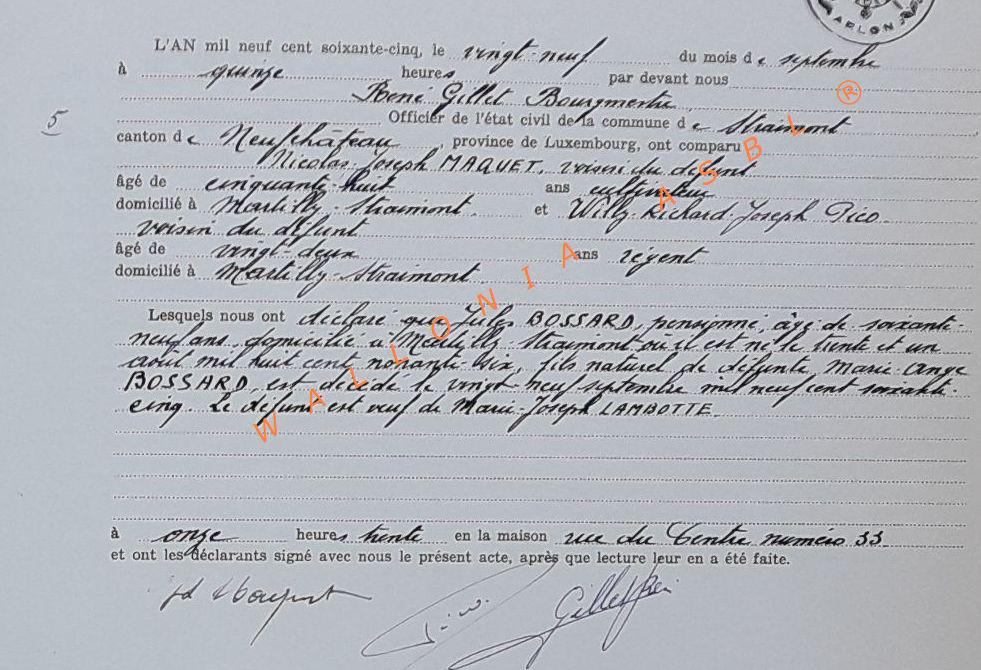 ARLON
L'AN mil neuf cent soixante-cinq, le vingt-neuf du mois de septembre
à quinze heures par devant nous
René Gillet Bourgmestre
Officier de l'état civil de la commune de Straimont
5
canton de Neufchâteau, province de Luxembourg, ont comparu
Nicolas-Joseph MAQUET, voisin du défunt
âgé de cinquante-huit ans cultivateur
domicilié à Martilly-Straimont et Willy-Richard-Joseph Pico
voisin du défunt
âgé de vingt-deux ans régent
domicilié à Martilly-Straimont
Lesquels nous ont déclaré que Jules BOSSARD, pensionné, âgé de soixante-
neuf ans, domicilié à Martilly-Straimont où il est né le trente et un
août mil huit cent nonante-six, fils naturel de défunte, Marie Ange
BOSSARD, est décédé le vingt neuf septembre mil neuf cent soixante-
cinq. Le défunt est veuf de Marie-Joseph LAMBOTTE.
à onze heures trente en la maison rue du Centre numéro 33
et ont les déclarants signé avec nous le présent acte, après que lecture leur en a été faite.
Gillet René
WALLONIA ASBL ®